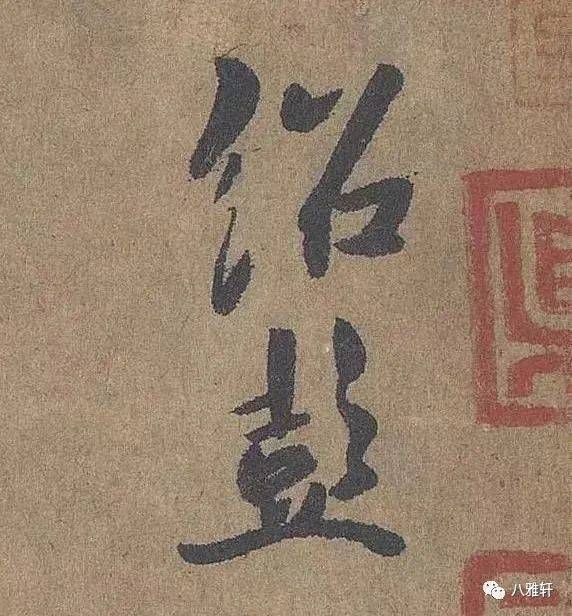 绍彭
八雅轩